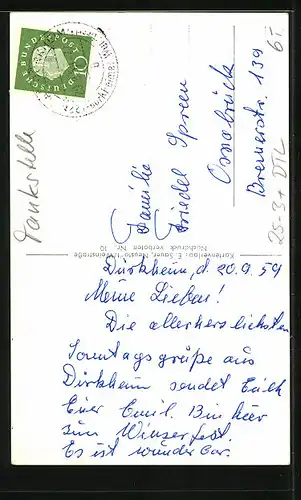 Dürkheim, d. 20.9.59
Meine Lieben!
Die allerherzlichsten
Sonntagsgrüße aus
Dürkheim sendet Euch
Euer Emil. Bin hier
zum Winzerfest.
Es ist wunderbar.
Familie
Friedel Spreen
Osnabrück
Bremerstr. 139
Kartenverlag E. Sauer, Neustadt/Weinstraße
Nachdruck verboten Nr. 10
DEUTSCHE BUNDESPOST
10
Tankstelle
25-3+ DTL
6T